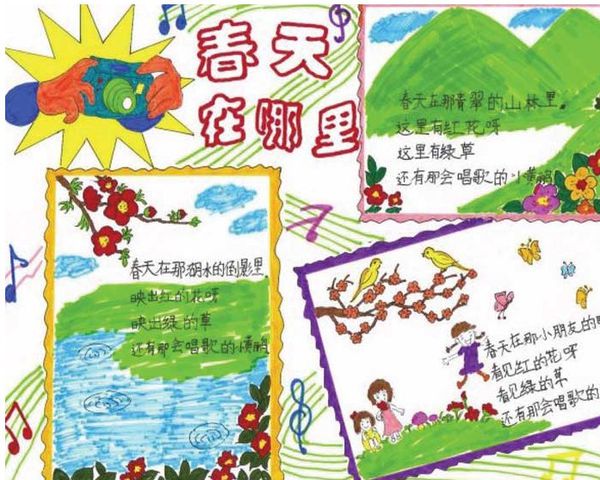 春天
在哪里
春天在那青翠的山林里。
这里有红花呀
这里有绿草
还有那会唱歌的小黄鹂
春天在那湖水的倒影里
映出红的花呀
映出绿的草
还有那会唱歌的小黄鹂
春天在那小朋友的
看见红的花呀
看见绿的草
还有那会唱歌的